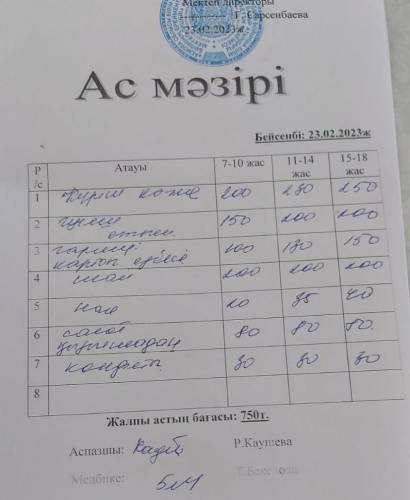 Мектеп директоры
Г. Сарсенбаева
23.02.2023ж
Ас мәзірі
Бейсенбі: 23.02.2023ж
Р/с Атауы 7-10 жас 11-14 жас 15-18 жас
1 Күріш көже 200 230 250
2 150 200 200
3 гарнир картоп езбесі 100 130 150
4 шай 200 200 200
5 нан 20 35 40
6 салат қызылшадан 80 80 80
7 конфеты 30 30 30
8
Жалпы астың бағасы: 750т.
Аспазшы: Р.Каушева
Медбике: